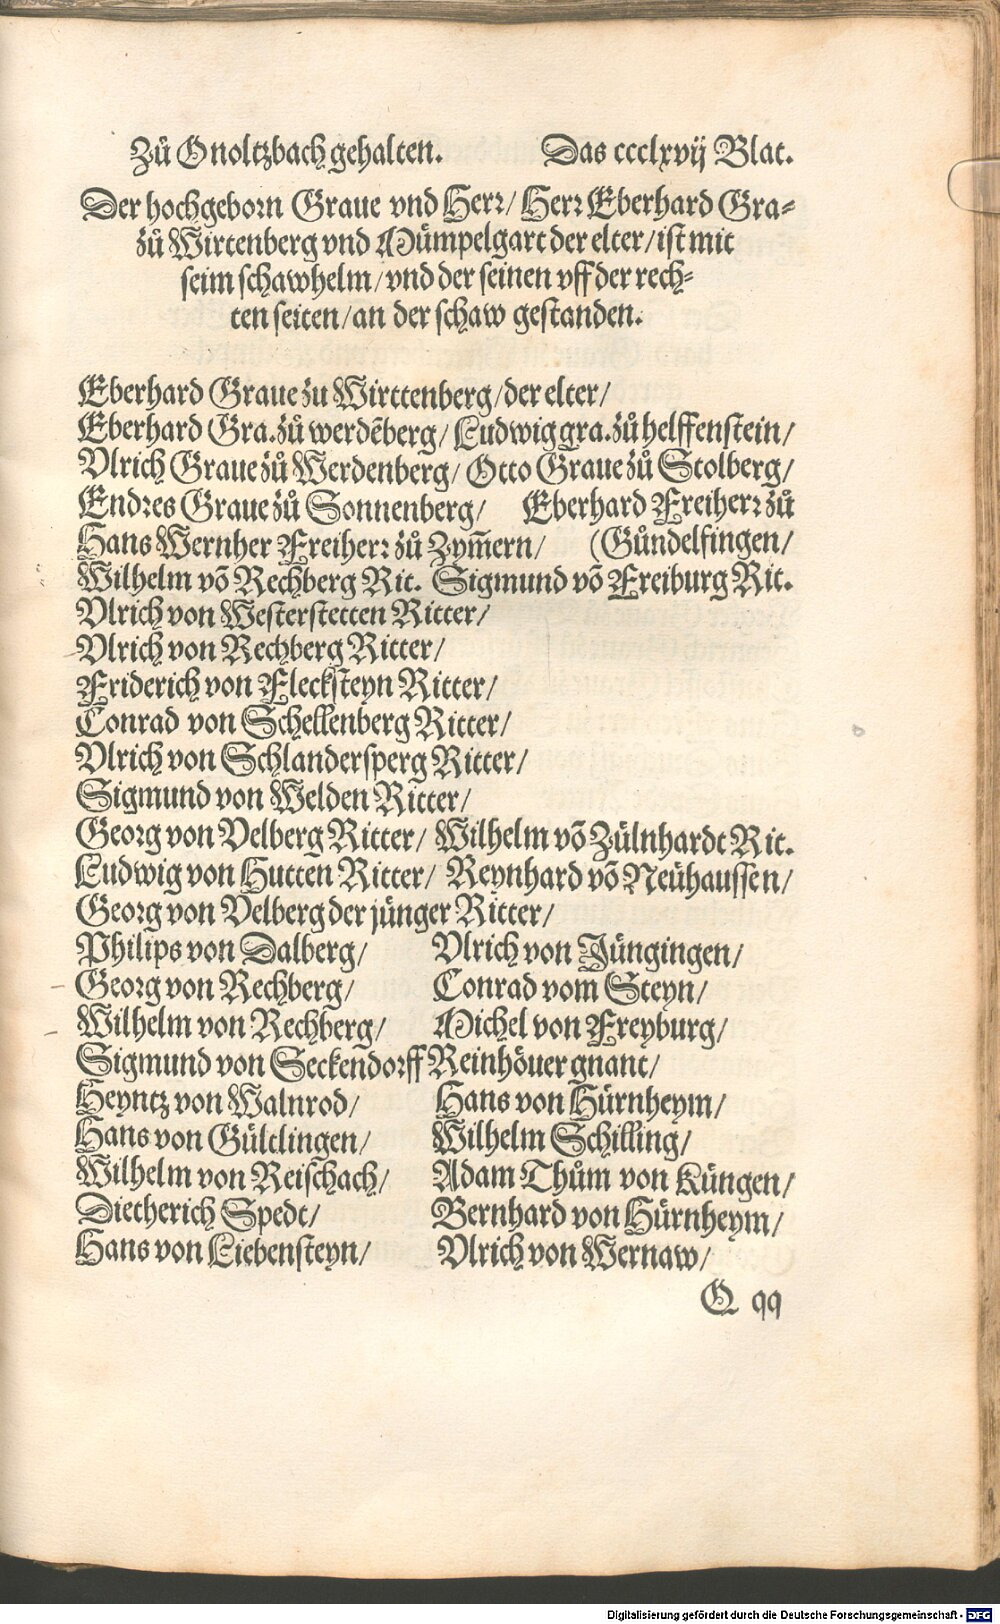 Zů Onoltzbach gehalten. Das ccclxvij Blat.
Der hochgeborn Graue vnd Herr/ Herr Eberhard Gra-
zů Wirtenberg vnd Mümpelgart der elter/ ist mit
seim schawhelm/ vnd der seinen vff der rech-
ten seiten/ an der schaw gestanden.
Eberhard Graue zu Wirttenberg/ der elter/
Eberhard Gra. zů werdēberg/ Ludwig gra. zů helffenstein/
Vlrich Graue zů Werdenberg/ Otto Graue zů Stolberg/
Endres Graue zů Sonnenberg/ Eberhard Freiherr zů
Hans Wernher Freiherr zů Zym̄ern/ (Gündelfingen/
Wilhelm vō Rechberg Rit. Sigmund vō Freiburg Rit.
Vlrich von Westerstetten Ritter/
Vlrich von Rechberg Ritter/
Friderich von Fleckšteyn Ritter/
Conrad von Schellenberg Ritter/
Vlrich von Schlandersperg Ritter/
Sigmund von Welden Ritter/
Georg von Velberg Ritter/ Wilhelm vō Zülnhardt Rit.
Ludwig von Hutten Ritter/ Reynhard vō Neühaussen/
Georg von Velberg der jünger Ritter/
Philips von Dalberg/ Vlrich von Jüngingen/
Georg von Rechberg/ Conrad vom Steyn/
Wilhelm von Rechberg/ Michel von Freyburg/
Sigmund von Seckendorff Reinhöuer gnant/
Heyntz von Walnrod/ Hans von Hürnheym/
Hans von Gültlingen/ Wilhelm Schilling/
Wilhelm von Reischach/ Adam Thům von Küngen/
Dietherich Spedt/ Bernhard von Hürnheym/
Hans von Liebensteyn/ Vlrich von Wernaw/
Q qq
Digitalisierung gefördert durch die Deutsche Forschungsgemeinschaft - DFG